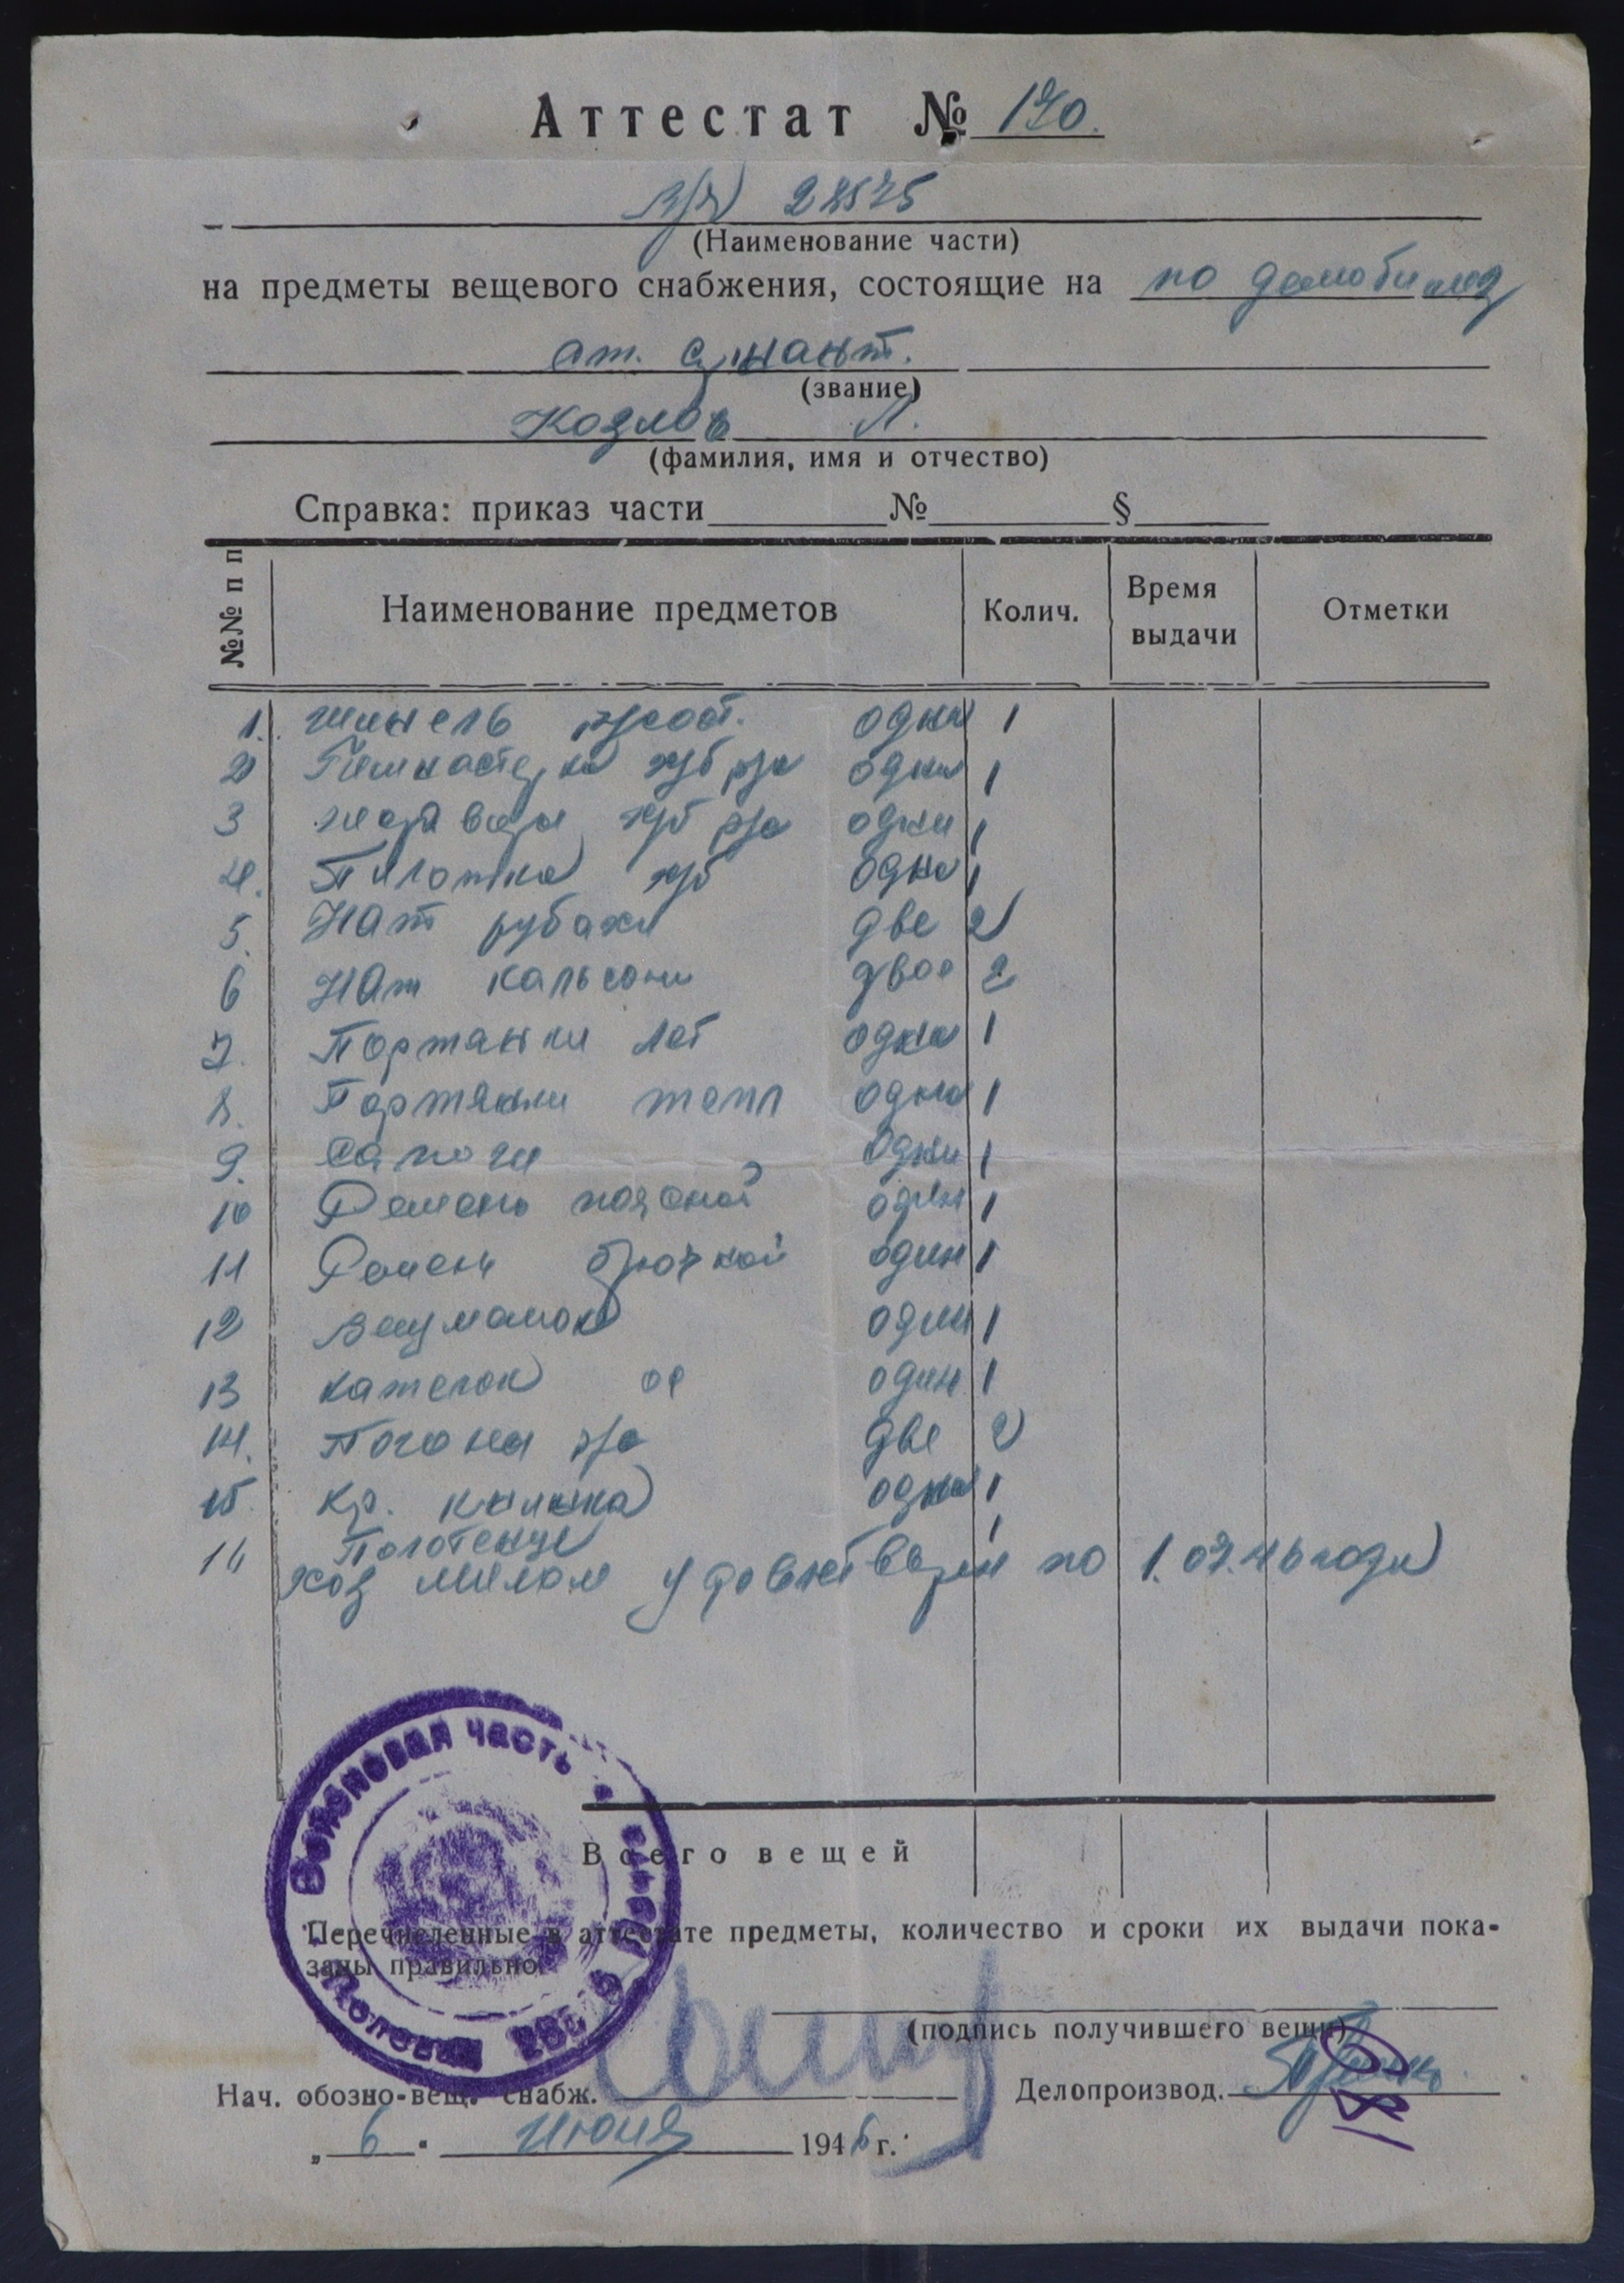 Аттестат № 170.
в/ч 28575
(Наименование части)
на предметы вещевого снабжения, состоящие на по демобилиз
ст. сержант.
(звание)
Козлов Л.
(фамилия, имя и отчество)
Справка: приказ части № §
№№ п п Наименование предметов Колич. Время выдачи Отметки
1. шинель одна 1
2 Гимнастерка х/б одна 1
3 шаровары х/б одни 1
4. Пилотка х/б одна 1
5. Нат рубахи две 2
6 Нат кальсоны двое 2
7. Портянки лет одна 1
8. Портянки тепл одна 1
9. Сапоги одни 1
10 Ремень поясной один 1
11 Ремень брючной один 1
12 Вещмешок один 1
13 Котелок один 1
14. Погоны две 2
15. Кр. книжка одна 1
16 Полотенце 1
Хоз мылом удовлетворен по 1.07.46 года
Войсковая часть
Полевая
Всего вещей
Перечисленные в аттестате предметы, количество и сроки их выдачи пока-
заны правильно.
(подпись получившего вещи)
Нач. обозно-вещ. снабж. Делопроизвод.
„6" июня 1946 г.